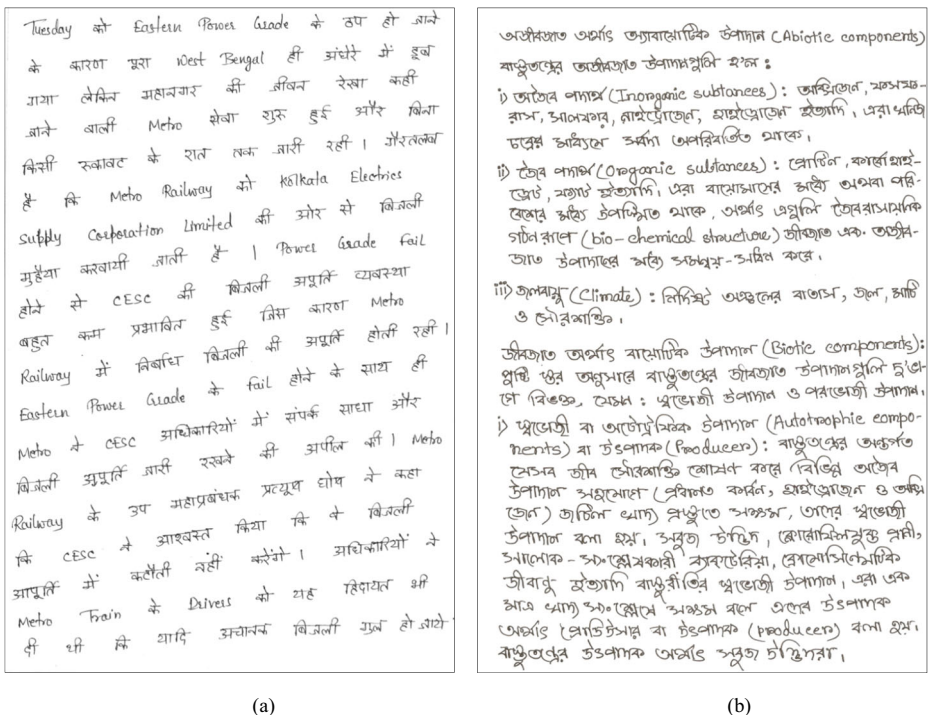 Tuesday को Eastern Power Grade के ठप हो जाने
के कारण पूरा West Bengal ही अंधेरे में डूब
गया लेकिन महानगर की जीवन रेखा कही
जाने वाली Metro सेवा शुरु हुई और बिना
किसी रुकावट के रात तक जारी रही। गौरतलब
है कि Metro Railway को Kolkata Electrics
Supply Corporation Limited की ओर से बिजली
मुहैया करवायी जाती है। Power Grade fail
होने से CESC की बिजली आपूर्ति व्यवस्था
बहुत कम प्रभावित हुई जिस कारण Metro
Railway में निर्बाध बिजली की आपूर्ति होती रही।
Eastern Power Grade के fail होने के साथ ही
Metro ने CESC अधिकारियों में संपर्क साधा और
बिजली आपूर्ति जारी रखने की अपील की। Metro
Railway के उप महाप्रबंधक प्रत्यूष घोष ने कहा
कि CESC ने आश्वस्त किया कि वे बिजली
आपूर्ति में कटौती नहीं करेंगे। अधिकारियों ने
Metro Train के Drivers को यह हिदायत भी
दी थी कि यादि अचानक बिजली गुल हो जाये
(a)
অজীবজাত অর্থাৎ অ্যাবায়োটিক উপাদান (Abiotic components)
বাস্তুতন্ত্রের অজীবজাত উপাদানগুলি হ'ল :
i) অজৈব পদার্থ (Inorganic subtances) : অক্সিজেন, ফসফ-
রাস, সালফার, নাইট্রোজেন, হাইড্রোজেন ইত্যাদি, এরা খনিজ
চক্রের মাধ্যমে সর্বদা অপরিবর্তিত থাকে।
ii) জৈব পদার্থ (Organic substances) : প্রোটিন, কার্বোহাই-
ড্রেট, ফ্যাট ইত্যাদি। এরা বায়োমাসের মধ্যে অথবা পরি-
বেশের মধ্যে উপস্থিত থাকে, অর্থাৎ এগুলি জৈবরাসায়নিক
গঠন রূপে (bio-chemical structure) জীবজাত এবং অজীব-
জাত উপাদানের মধ্যে সমন্বয়-সাধন করে।
iii) জলবায়ু (Climate) : নির্দিষ্ট অঞ্চলের বাতাস, জল, মাটি
ও সৌরশক্তি।
জীবজাত অর্থাৎ বায়োটিক উপাদান (Biotic components):
পুষ্টি স্তর অনুসারে বাস্তুতন্ত্রের জীবজাত উপাদানগুলি দু'ভা-
গে বিভক্ত, যেমন : স্বভোজী উপাদান ও পরভোজী উপাদান।
i) স্বভোজী বা অটোট্রফিক উপাদান (Autotrophic compo-
nents) বা উৎপাদক (Producer) : বাস্তুতন্ত্রের অন্তর্গত
যেসব জীব সৌরশক্তি শোষণ করে বিভিন্ন অজৈব
উপাদান সহযোগে (প্রধানত কার্বন, হাইড্রোজেন ও অক্সি
জেন) জটিল খাদ্য প্রস্তুতে সক্ষম, তাদের স্বভোজী
উপাদান বলা হয়। সবুজ উদ্ভিদ, ক্লোরোফিলযুক্ত প্রাণী,
সালোক-সংশ্লেষকারী ব্যাকটেরিয়া, কেমোসিন্থেটিক
জীবাণু ইত্যাদি বাস্তুরীতির স্বভোজী উপাদান, এরা এক
মাত্র খাদ্য সংশ্লেষে সক্ষম বলে এদের উৎপাদক
অর্থাৎ প্রোডিউসার বা উৎপাদক (producer) বলা হয়।
বাস্তুতন্ত্রের উৎপাদক অর্থাৎ সবুজ উদ্ভিদরা।
(b)